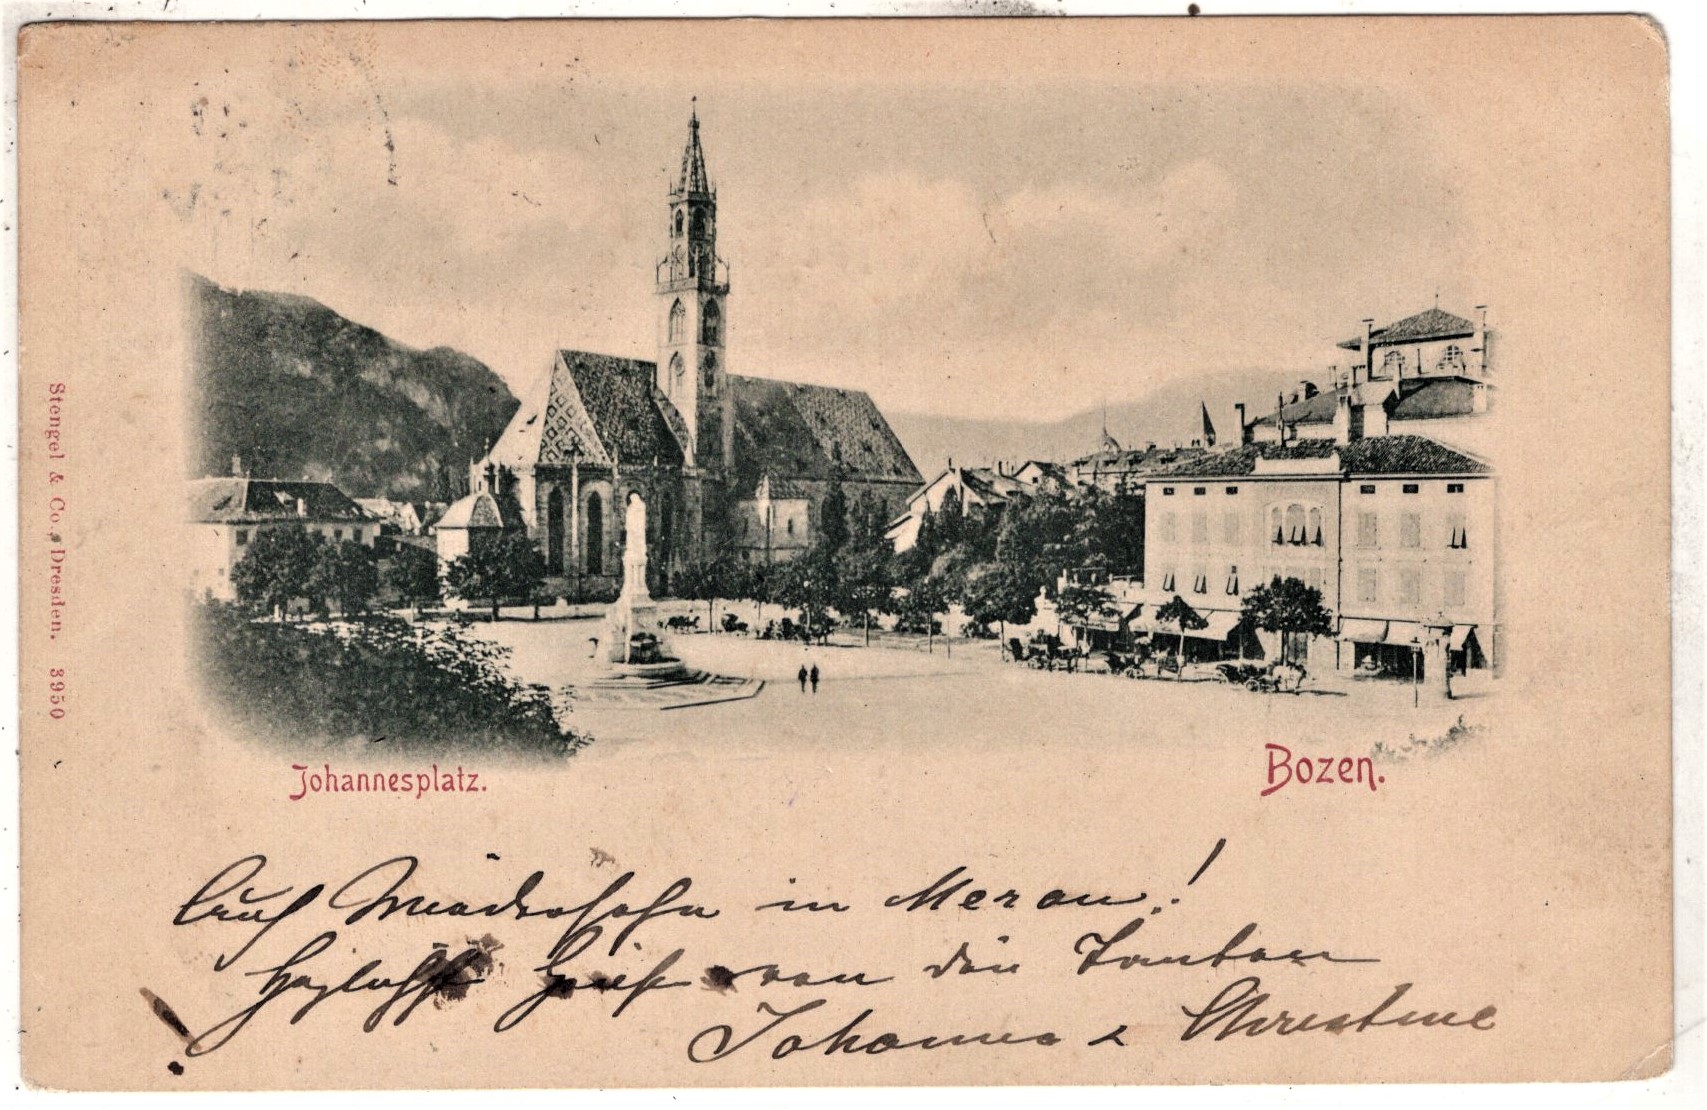 Stengel & Co., Dresden. 3950
Johannesplatz.
Bozen.
Auf Wiedersehn in Meran!
Gruß von den Tanten
Johanna & Christine